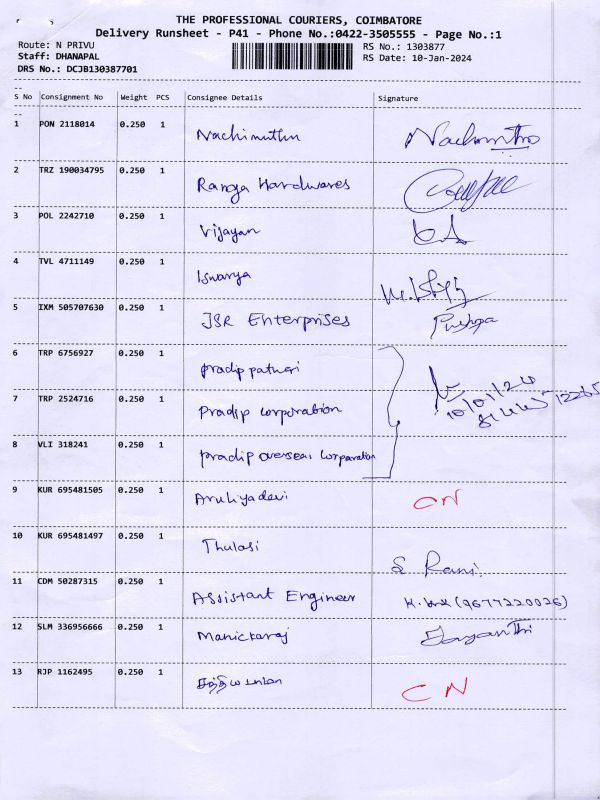 THE PROFESSIONAL COURIERS, COIMBATORE
Delivery Runsheet - P41 - Phone No.:0422-3505555 - Page No.:1
Route: N PRIVU RS No.: 1303877
Staff: DHANAPAL RS Date: 10-Jan-2024
DRS No.: DCJB130387701
S No Consignment No Weight PCS Consignee Details Signature
1 PON 2118014 0.250 1 Nachimuthu
2 TRZ 190034795 0.250 1 Ranga Hardwares
3 POL 2242710 0.250 1 Vijayan
4 TVL 4711149 0.250 1 Iswarya
5 IXM 505707630 0.250 1 JSR Enterprises Pushpa
6 TRP 6756927 0.250 1 Pradip
7 TRP 2524716 0.250 1 Pradip Corporation 10/01/24
8 VLI 318241 0.250 1 Pradip overseas Corporation
9 KUR 695481505 0.250 1 Aruliyadevi CN
10 KUR 695481497 0.250 1 Thulasi S Rani
11 CDM 50287315 0.250 1 Assistant Engineer (9677220026)
12 SLM 336956666 0.250 1 Manickaraj Jayanthi
13 RJP 1162495 0.250 1 CN